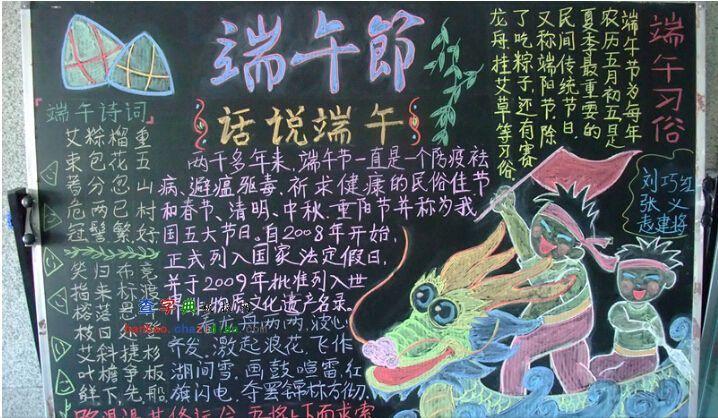 端午節
话说端午
端午诗词
重五山村好
榴花忽已繁
粽包分两髻
艾束著危冠
两千多年来,端午节一直是一个防疫祛
病、避瘟驱毒、祈求健康的民俗佳节
和春节、清明、中秋、重阳节并称为我
国五大节日,自2008年开始,
正式列入国家法定假日,
并于2009年批准列入世
物质文化遗产名录。
两两,波心
齐发,激起浪花,飞作
湖间雪,画鼓喧雷,红
旗闪电,夺罢锦标方彻
路漫漫其修远兮,吾将上下而求索
端午习俗
端午节为每年
农历五月初五是
夏季最重要的
民间传统节日,
又称端阳节.除
了吃粽子还有赛
龙舟,挂艾草等习俗.
刘巧红
张义
赵建将
查字典